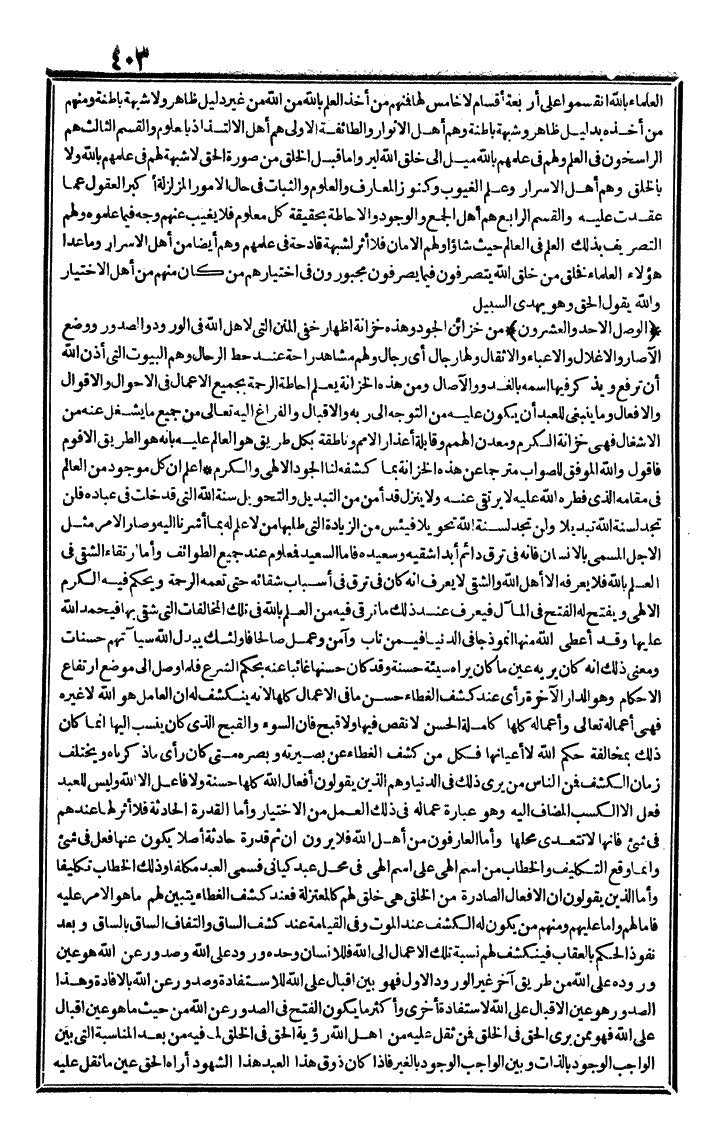 ٤٠٣
العلماء بالله انقسموا على أربعة أقسام لا خامس لها فمنهم من أخذ العلم بالله من الله من غير دليل ظاهر ولا شبهة باطنة ومنهم
من أخذه بدليل ظاهر وشبهة باطنة وهم أهل الانوار والطائفة الاولى هم أهل الالتذاذ بالعلوم والقسم الثالث هم
الراسخون فى العلم ولهم فى علمهم بالله ميل الى خلق الله ليروا ما قبل الخلق من صورة الحق لا شبهة لهم فى علمهم بالله ولا
بالخلق وهم أهل الاسرار وعلم الغيوب وكنوز المعارف والعلوم والثبات فى حال الامور المزلزلة أكبر العقول عما
عقدت عليه والقسم الرابع هم أهل الجمع والوجود والاحاطة بحقيقة كل معلوم فلا يغيب عنهم وجه فيما علموه ولهم
التصريف بذلك العلم فى العالم حيث شاؤا ولهم الامان فلا أثر لشبهة قادحة فى علمهم وهم أيضا من أهل الاسرار وما عدا
هؤلاء العلماء نخلق من خلق الله يتصرفون فيما يصرفون مجبورون فى اختيارهم من كان منهم من أهل الاختيار
والله يقول الحق وهو يهدى السبيل
﴿الوصل الاحد والعشرون﴾ من خزائن الجود وهذه خزانة اظهار خفى المنن التى لاهل الله فى الورود والصدور ووضع
الآصار والاغلال والاعباء والاثقال ولها رجال أى رجال ولهم مشاهد راحة عند حط الرحال وهم البيوت التى أذن الله
أن ترفع ويذكر فيها اسمه بالغدو والآصال ومن هذه الخزانة يعلم احاطة الرحمة بجميع الاعمال فى الاحوال والاقوال
والافعال وما ينبغى للعبد أن يكون عليه من التوجه الى ربه والاقبال والفراغ اليه تعالى من جميع ما يشغل عنه من
الاشغال فهى خزانة الكرم ومعدن الهمم وقابلة أعذار الامم وناطقة بكل طريق هو العالم عليه بانه هو الطريق الاقوم
فاقول والله الموفق للصواب مترجما عن هذه الخزانة بما كشفه لنا الجود الالهى والكرم * اعلم ان كل موجود من العالم
فى مقامه الذى فطره الله عليه لا يرتقى عنه ولا ينزل قد أمن من التبديل والتحويل سنة الله التى قد خلت فى عباده فلن
تجد لسنة الله تبديلا ولن تجد لسنة الله تحويلا فيئس من الزيادة التى طلبها من لا علم له بما أشرنا اليه وصار الامر مثل
الاجل المسمى بالانسان فانه فى ترق دائم أبدا شقيه وسعيده فاما السعيد فمعلوم عند جميع الطوائف وأما ارتقاء الشقى فى
العلم بالله فلا يعرفه الا أهل الله والشقى لا يعرف انه كان فى ترق فى أسباب شقائه حتى تعمه الرحمة ويحكم فيه الكرم
الالهى ويفتح له الفتح فى المآل فيعرف عند ذلك ما ترقى فيه من العلم بالله فى تلك المخالفات التى شقى بها فيحمد الله
عليها وقد أعطى الله منها انموذجا فى الدنيا فيمن تاب وآمن وعمل صالحا فاولئك يبدل الله سيآتهم حسنات
ومعنى ذلك انه كان يريه عين ما كان يراه سيئة حسنة وقد كان حسنها غائبا عنه بحكم الشرع فلما وصل الى موضع ارتفاع
الاحكام وهو الدار الآخرة رأى عند كشف الغطاء حسن ما فى الاعمال كلها لانه ينكشف له ان العامل هو الله لا غيره
فهى أعماله تعالى وأعماله كلها كاملة الحسن لا نقص فيها ولا قبح فان السوء والقبح الذى كان ينسب اليها انما كان
ذلك بمخالفة حكم الله لا أعيانها فكل من كشف الغطاء عن بصيرته وبصره متى كان رأى ما ذكرناه ويختلف
زمان الكشف فمن الناس من يرى ذلك فى الدنيا وهم الذين يقولون أفعال الله كلها حسنة ولا فاعل الا الله وليس للعبد
فعل الا الكسب المضاف اليه وهو عبارة عما له فى ذلك العمل من الاختيار وأما القدرة الحادثة فلا أثر لها عندهم
فى شئ فانها لا تتعدى محلها وأما العارفون من أهل الله فلا يرون ان ثم قدرة حادثة أصلا يكون عنها فعل فى شئ
وانما وقع التكليف والخطاب من اسم الهى على اسم الهى فى محل عبد كيانى فسمى العبد مكلفا وذلك الخطاب تكليفا
وأما الذين يقولون ان الافعال الصادرة من الخلق هى خلق لهم كالمعتزلة فعند كشف الغطاء يتبين لهم ما هو الامر عليه
فاما لهم واما عليهم ومنهم من يكون له الكشف عند الموت وفى القيامة عند كشف الساق والتفاف الساق بالساق وبعد
نفوذ الحكم بالعقاب فينكشف لهم نسبة تلك الاعمال الى الله فللانسان وحده ورود على الله وصدور عن الله هو عين
وروده على الله من طريق آخر غير الورود الاول فهو بين اقبال على الله للاستفادة وصدور عن الله بالافادة وهذا
الصدور هو عين الاقبال على الله لاستفادة أخرى وأكثر ما يكون الفتح فى الصدور عن الله من حيث ما هو عين اقبال
على الله فهو ممن يرى الحق فى الخلق فمن ثقل عليه من اهل الله رؤية الحق فى الخلق لما فيه من بعد المناسبة التى بين
الواجب الوجود بالذات وبين الواجب الوجود بالغير فاذا كان ذوق هذا العبد هذا الشهود أراه الحق عين ما ثقل عليه